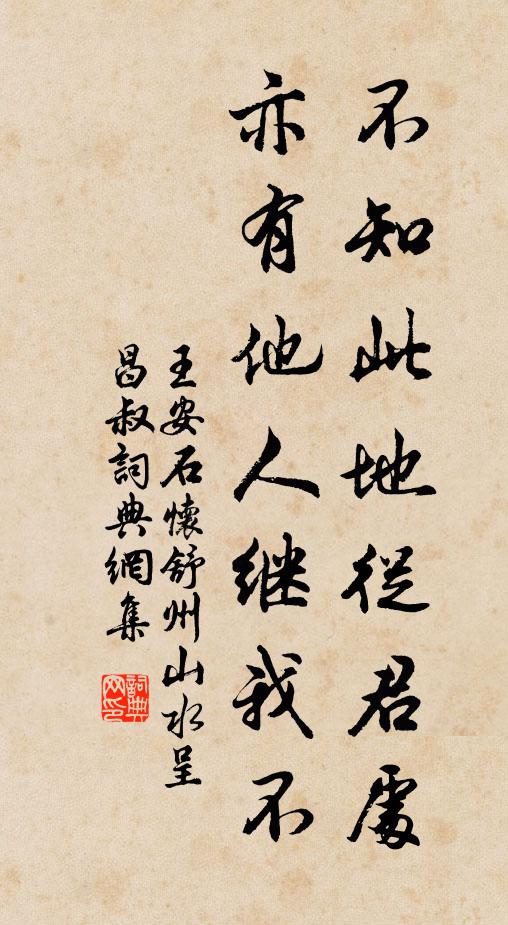 不知此地從君處
亦有他人繼我不
王安石懷舒州山水呈
昌叔詞典網集
詞典
网印